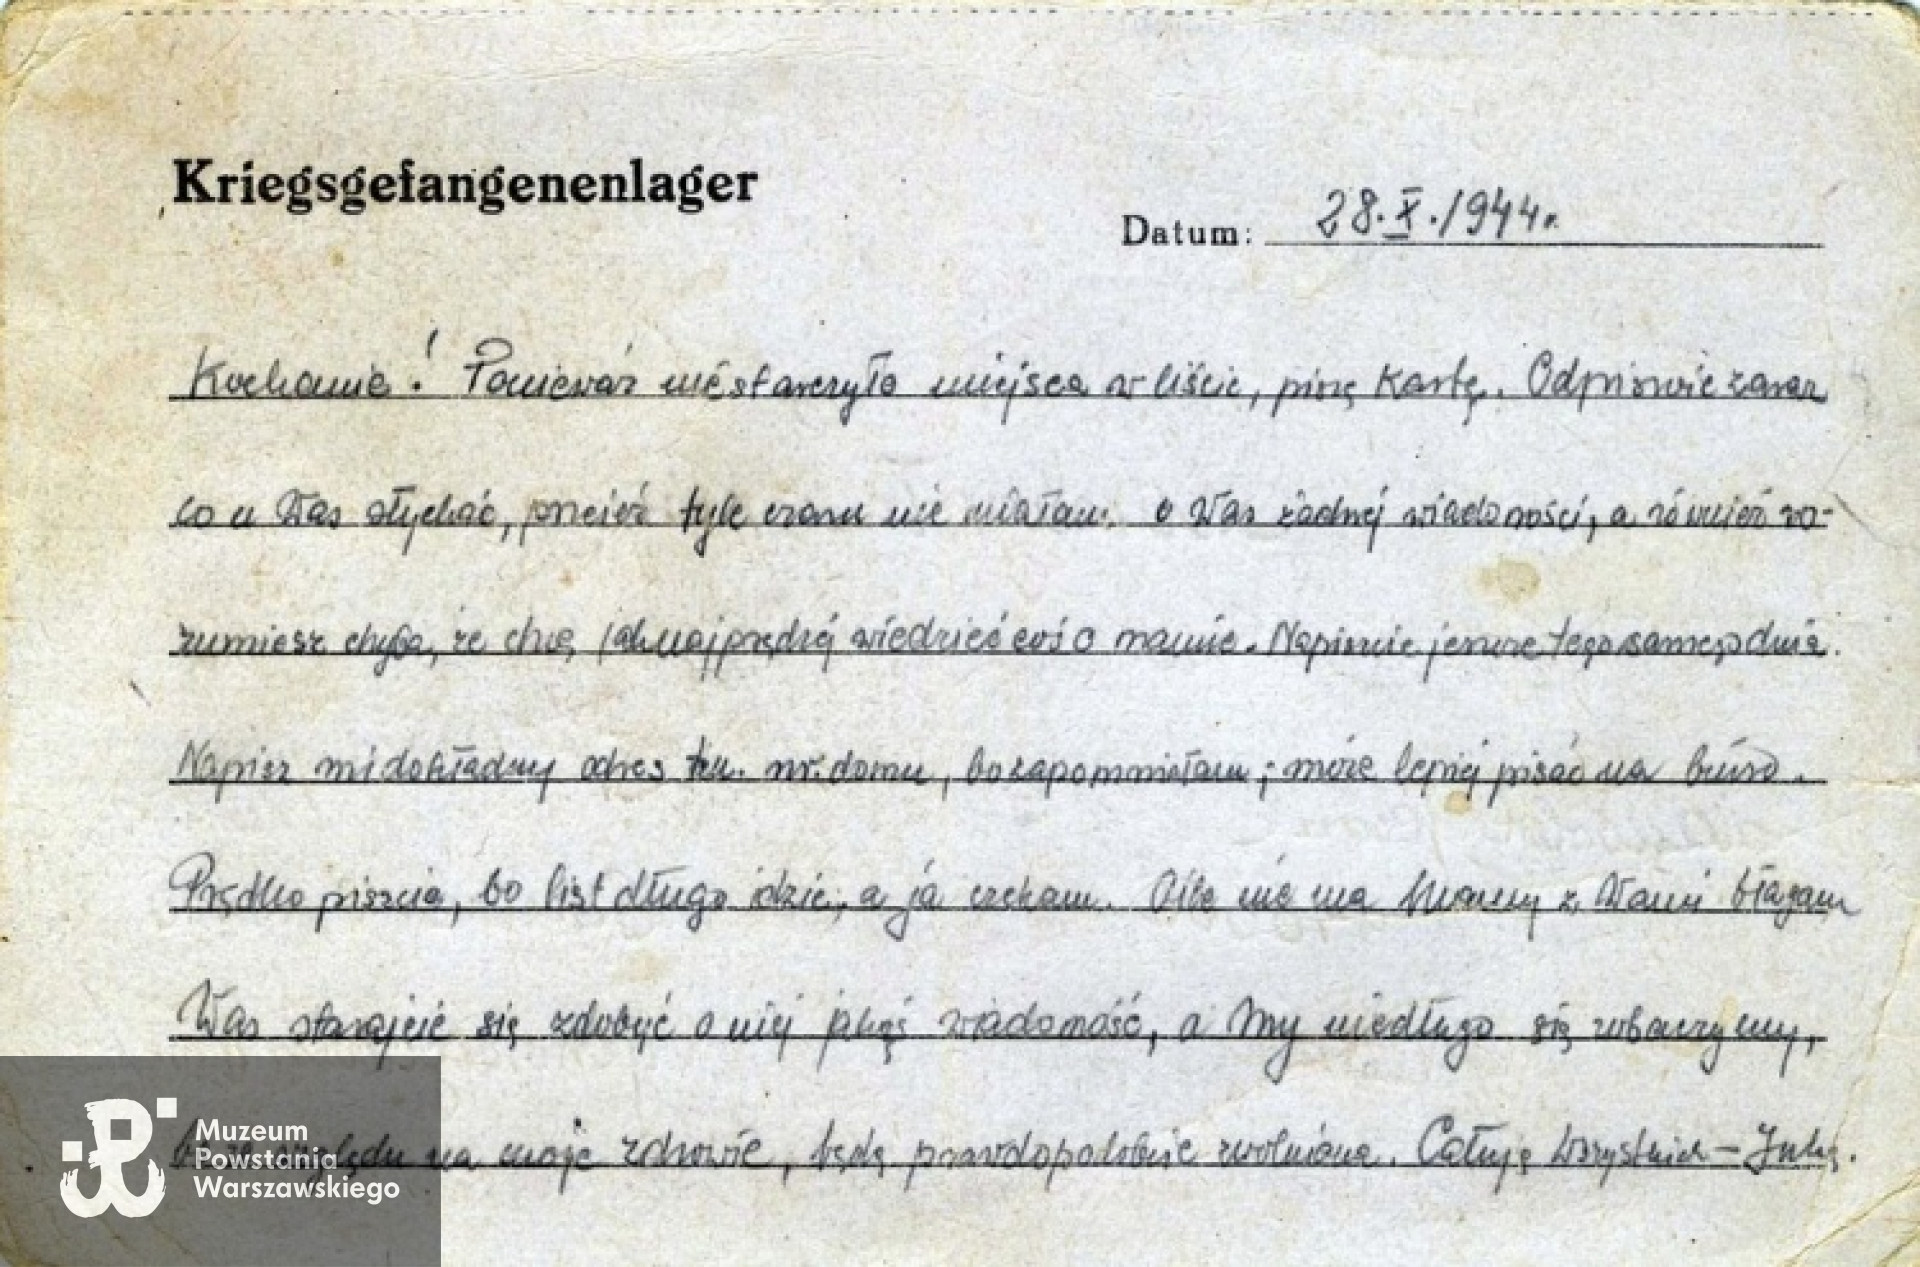 Kriegsgefangenenlager
Datum: 28.X.1944r.
Kochanie! Ponieważ nie starczyło miejsca w liście, piszę kartę. Odpiszcie zaraz
co u Was słychać, przecież tyle czasu nie miałam o Was żadnej wiadomości, a również ro-
zumiesz chyba, że chcę jaknajprędzej wiedzieć coś o mamie. Napiszcie jeszcze tego samego dnia.
Napisz mi dokładny adres tzn. nr. domu, bo zapomniałam; może lepiej pisać na biuro.
Prędko piszcie, bo list długo idzie, a ja czekam. O ile nie ma Mamy z Wami błagam
Was starajcie się zdobyć o niej jakąś wiadomość, a my niedługo się zobaczymy,
na moje zdrowie, będę prawdopodobnie zwolniona. Całuję wszystkich –
Muzeum
Powstania
Warszawskiego